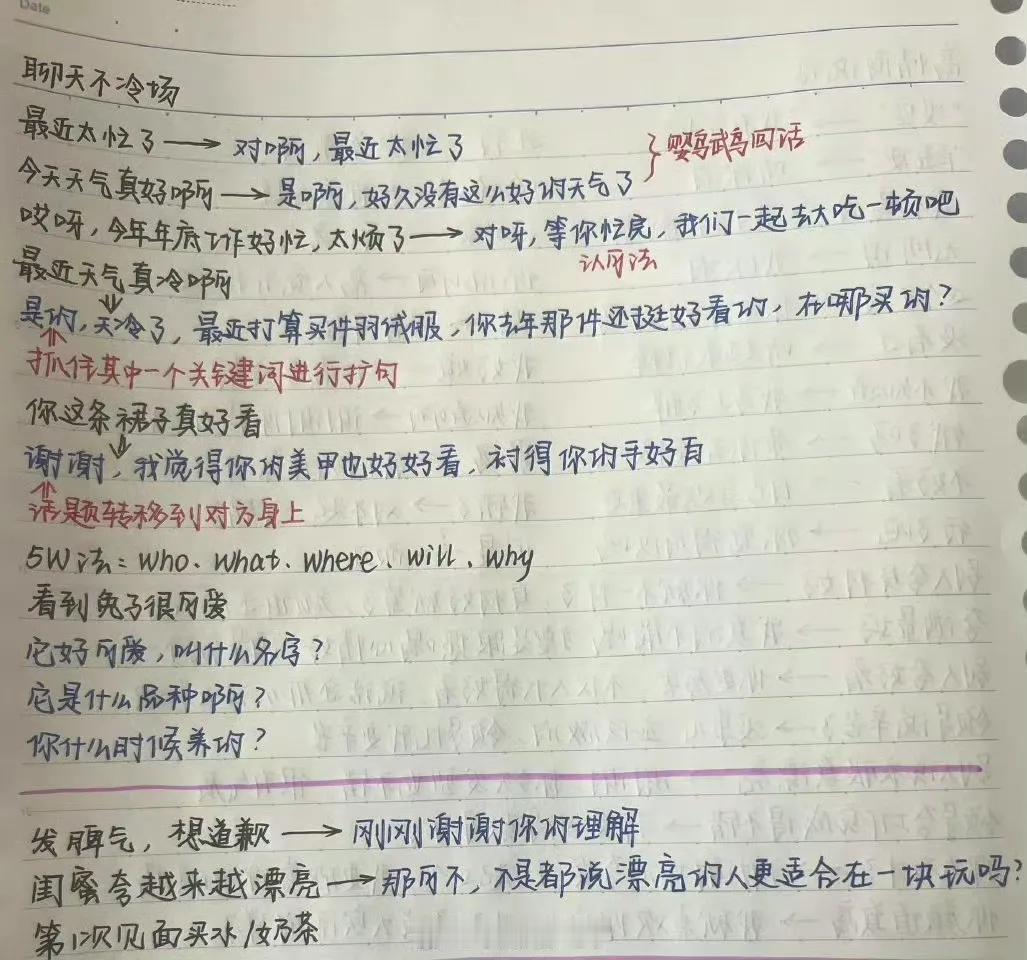 Date
聊天不冷场
最近太忙了 → 对啊，最近太忙了
今天天气真好啊 → 是啊，好久没有这么好的天气了 } 鹦鹉回话
哎呀，今年年底工作好忙，太烦了 → 对呀，等你忙完，我们一起去大吃一顿吧
认可法
最近天气真冷啊
是的，天冷了，最近打算买件羽绒服，你去年那件还挺好看的，在哪买的？
抓住其中一个关键词进行扩句
你这条裙子真好看
谢谢，我觉得你的美甲也好好看，衬得你的手好白
话题转移到对方身上
5W法：who、what、where、will、why
看到兔子很可爱
它好可爱，叫什么名字？
它是什么品种啊？
你什么时候养的？
发脾气，想道歉 → 刚刚谢谢你的理解
闺蜜夸越来越漂亮 → 那可不，不是都说漂亮的人更适合在一块玩吗？
第1次见面买水/奶茶